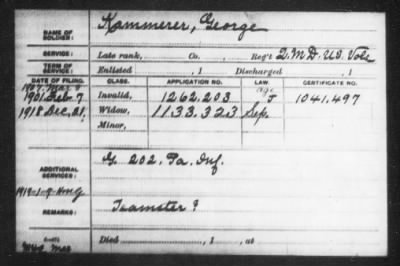 NAME OF SOLDIER: Kammerer, George
SERVICE: Late rank, Co. Reg't Q.M.D. US Vols
TERM OF SERVICE: Enlisted , 1 Discharged , 1
DATE OF FILING. CLASS. APPLICATION NO. LAW. CERTIFICATE NO.
age
1901 Feb 7 Invalid, 1262.203 J 1041.497
1918 Dec. 21. Widow, 1133.323 Sep.
Minor,
ADDITIONAL SERVICES: G. 202. Pa. Inf.
REMARKS: Teamster?
Died , 1 , at